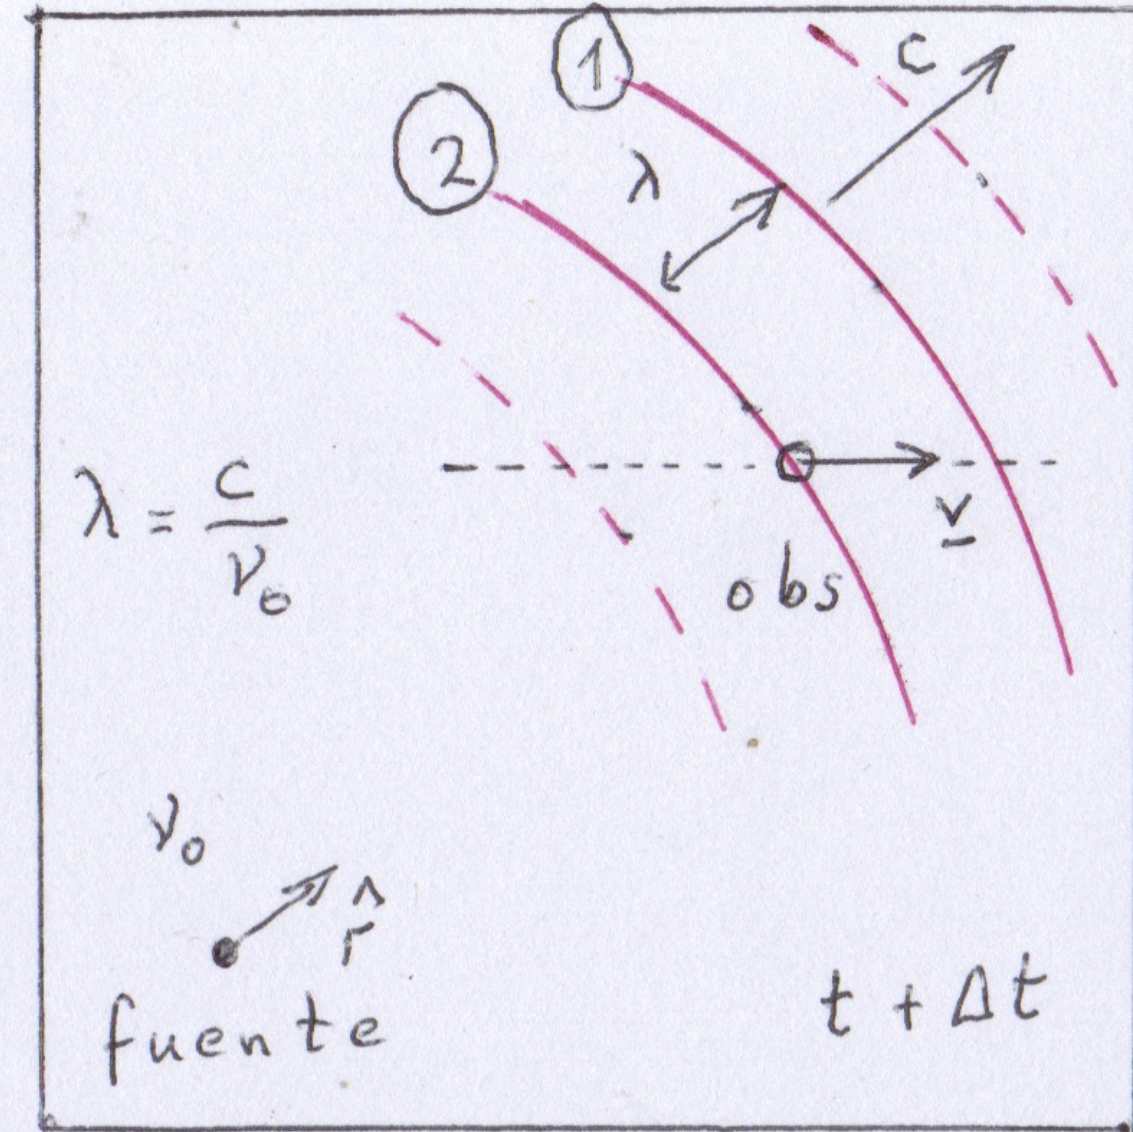 1
c
2
λ
λ = c / ν₀
v
obs
ν₀
r̂
fuente
t + Δt